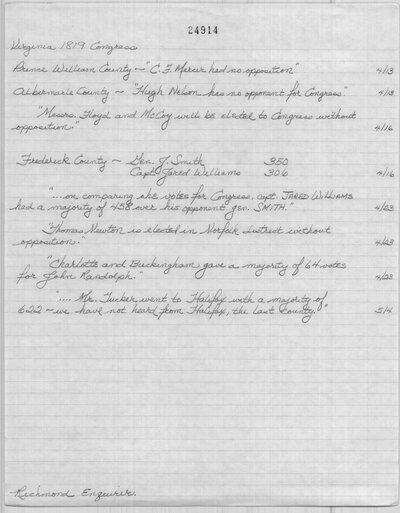 24914
Virginia 1819 Congress
Prince William County — "C. F. Mercer had no opposition" 4/13
Albemarle County — "Hugh Nelson has no opponent for Congress" 4/13
"Messrs. Floyd and McCoy will be elected to Congress without
opposition." 4/16
Frederick County — Gen. J. Smith 350
Capt. Jared Williams 306 4/16
"...on comparing the votes for Congress, capt. JARED WILLIAMS
had a majority of 458 over his opponent gen. SMITH." 4/23
Thomas Newton is elected in Norfolk District without
opposition. 4/23
"Charlotte and Buckingham gave a majority of 64 votes
for John Randolph." 4/23
".... Mr. Tucker went to Halifax with a majority of
622 – we have not heard from Halifax, the last county." 5/4
Richmond Enquirer.